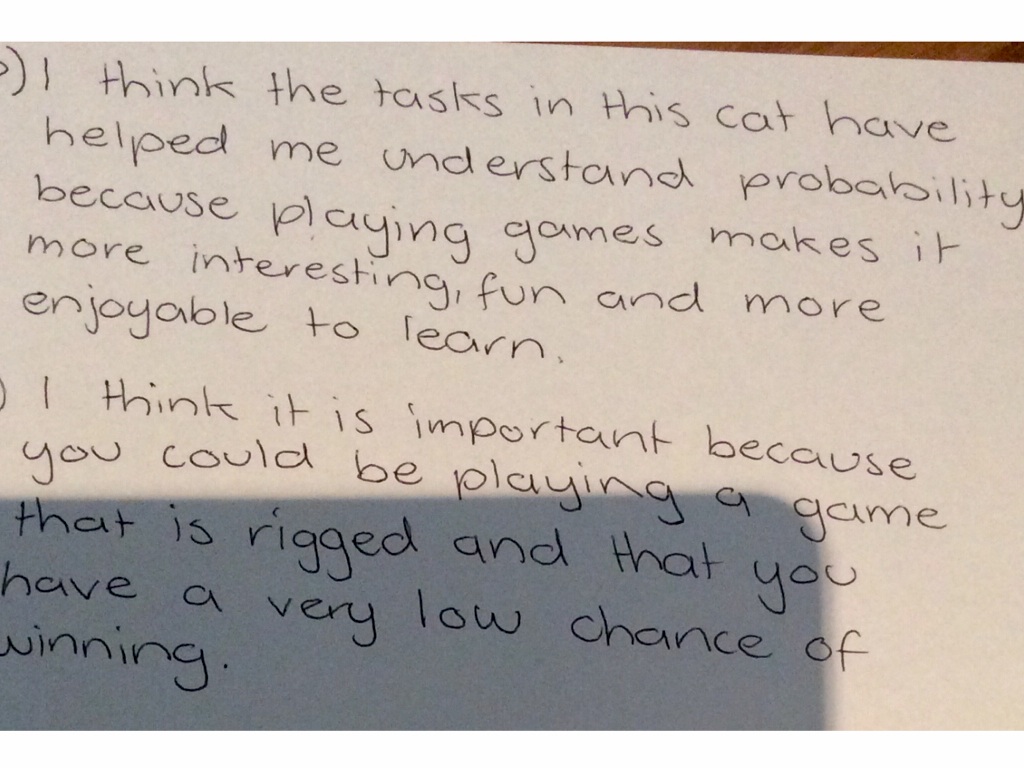 ) I think the tasks in this cat have
helped me understand probability
because playing games makes it
more interesting, fun and more
enjoyable to learn.
) I think it is important because
you could be playing a game
that is rigged and that you
have a very low chance of
winning.